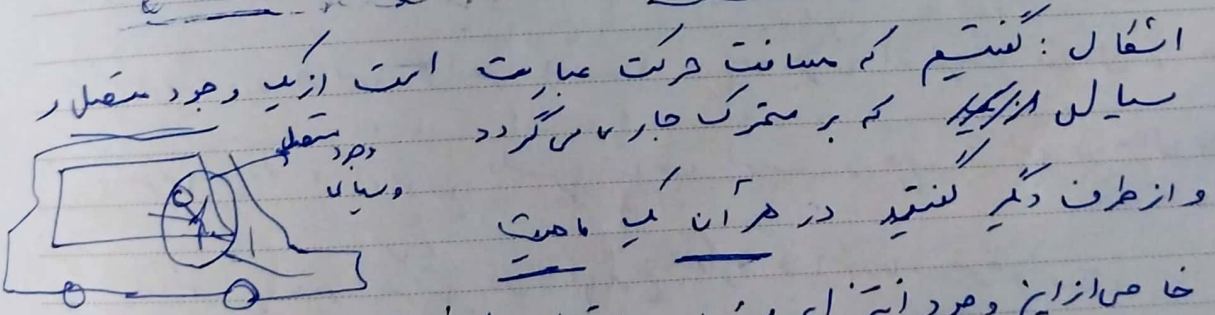 اشکال : گفتیم که مسافت حرکت عبارت است از یک وجود متصل و
سیالی که بر متحرک جاری می گردد
وجود متصل
و سیال
و از طرف دیگر گفتید در هر آن یک ماهیت
خاصی از این وجود